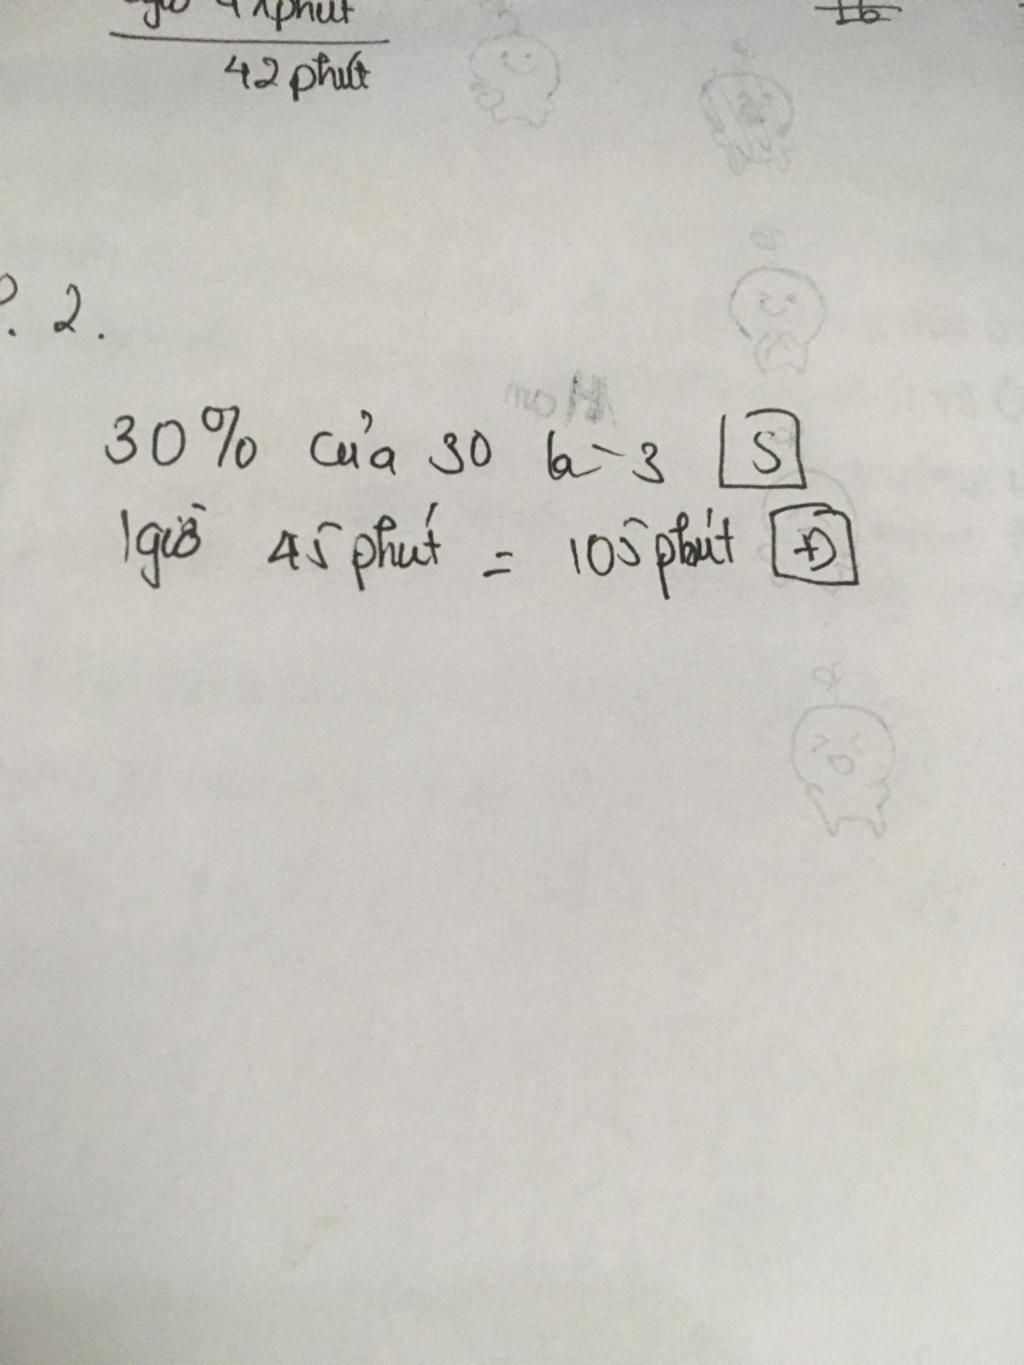 42 phút
2.
30% của 30 là 3 S
1giờ 45 phút = 105 phút Đ